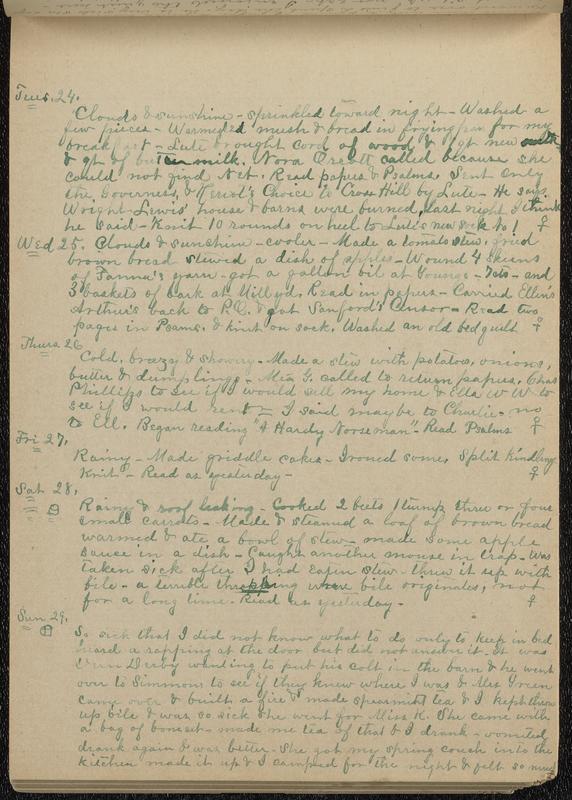 Tues. 24.
Clouds & sunshine - sprinkled toward night - Washed a
few pieces - Warmed mush & bread in frying pan for my
breakfast - Lute brought cord of wood & gt new milk
& qt of buttermilk. Nora called because she
could not find Net. Read papers & Psalms. Sent Only
the Governess, & Choice to Cross Hill by Lute - He says
Wright-Lewis' house & barns were burned last night I think
he said - Knit 10 rounds on heel to Lute's new sock No! ♀
Wed 25. Clouds & sunshine - cooler - Made a tomato stew, fried
brown bread stewed a dish of apples - Wound 4 skeins
of yarn - got a gallon oil at Youngs - 70ts - and
3 baskets of bark at Millyd. Read in papers - Carried Ellin's
Arthur's back to P.O. & got Sanford's Censor - Read two
pages in Psams. & knit on sock. Washed an old bedquild ♀
Thurs 26
Cold, breezy & showery - Made a stew with potatoes, onions,
butter & dumplings - Mea G. called to return papers. Chas
Phillips to see if I would sell my home & Ella W W. to
see if I would rent - I said maybe to Charlie - no
to Ell. Began reading "A Hardy Norseman" - Read Psalms ♀
Fri 27,
Rainy - Made griddle cakes - Ironed some, Split kindling
Knit - Read as yesterday - ♀
Sat 28,
Rainy & roof leaking - Cooked 2 bets 1 turnip three or four
small carrots - Made & steamed a loaf of brown bread
warmed & ate a bowl of stew - made some apple
sauce in a dish - Caught another mouse in trap - Was
taken sick after I had eaten stew - threw it up with
bile - a terrible throbbing where bile originates, not
for a long time. Read as yesterday - ♀
Sun 29,
So sick that I did not know what to do only to keep in bed
heard a rapping at the door but did not answer it - It was
Vern Derby wanting to put his colt in the barn & he went
over to Simmons to see if they knew where I was & Mrs Green
came over & built a fire & made spearmint tea & I kept throwing
up bile & was so sick she went for Miss K. She came with
a bag of boneset - made me tea of that & I drank - vomited,
drank again & was better - She got my spring couch into the
kitchen made it up & I camped for the night & felt so much